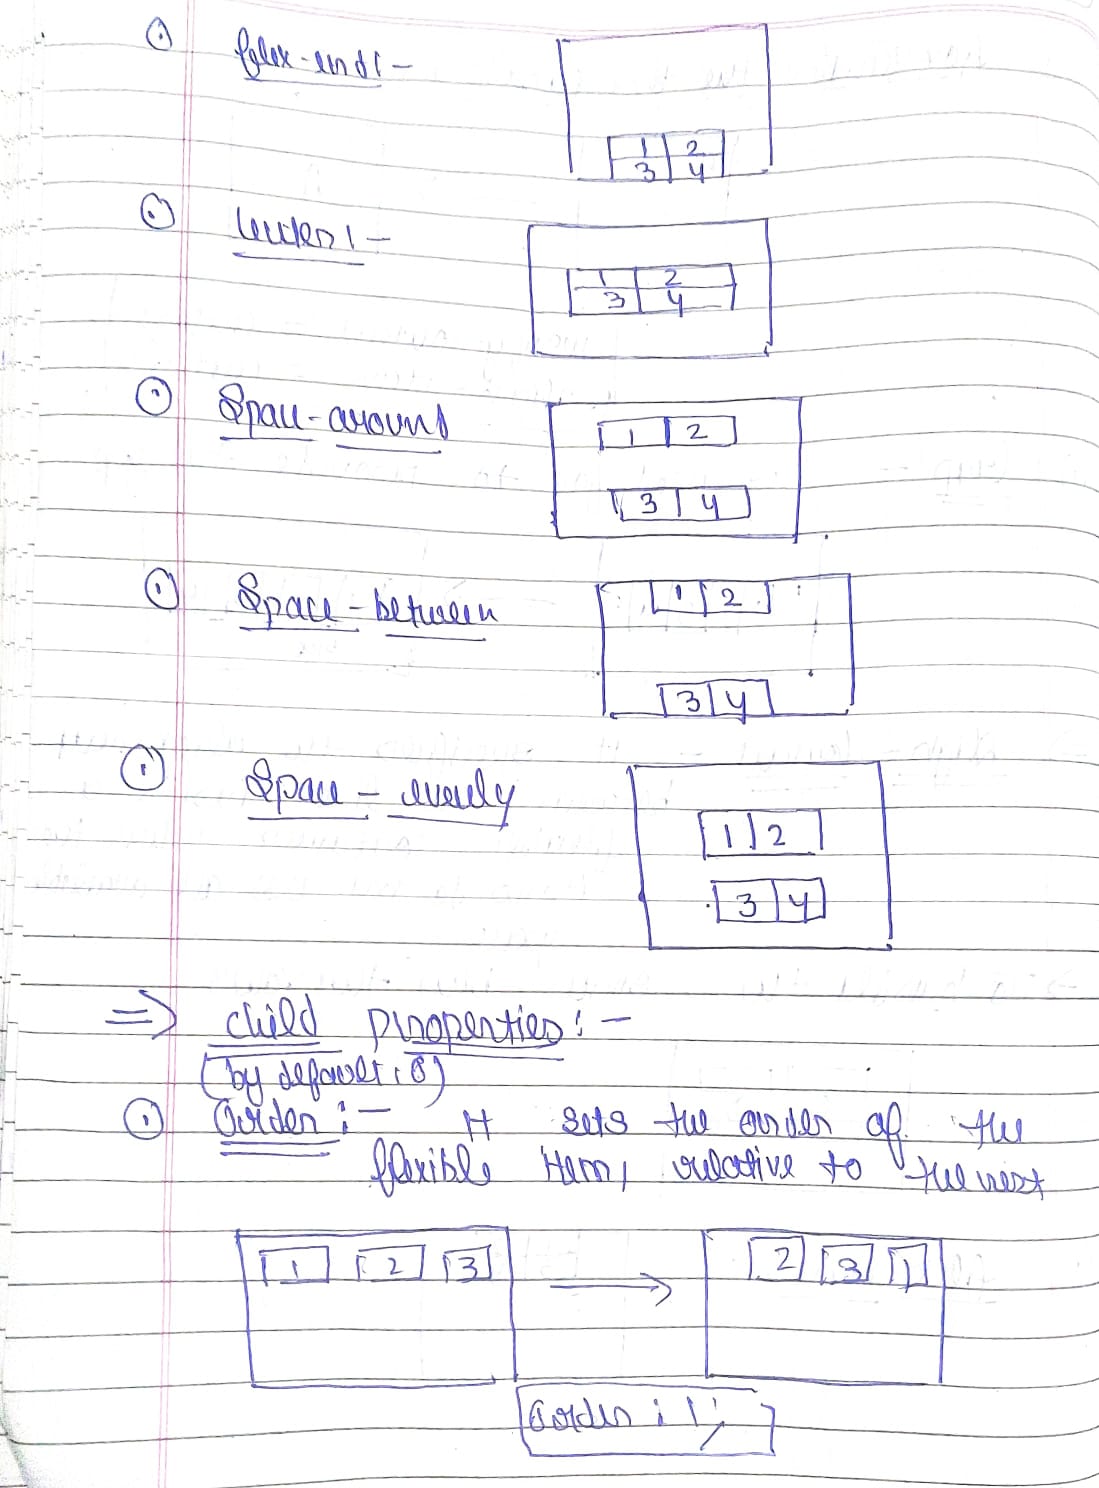 flex-end :-
1 2
3 4
Center :-
1 2
3 4
Space-around
1 2
3 4
Space-between
1 2
3 4
Space-evenly
1 2
3 4
=> child properties :-
(by default : 0)
Order :- It sets the order of the
flexible item, relative to the rest
1 2 3 → 2 3 1
order : 1;